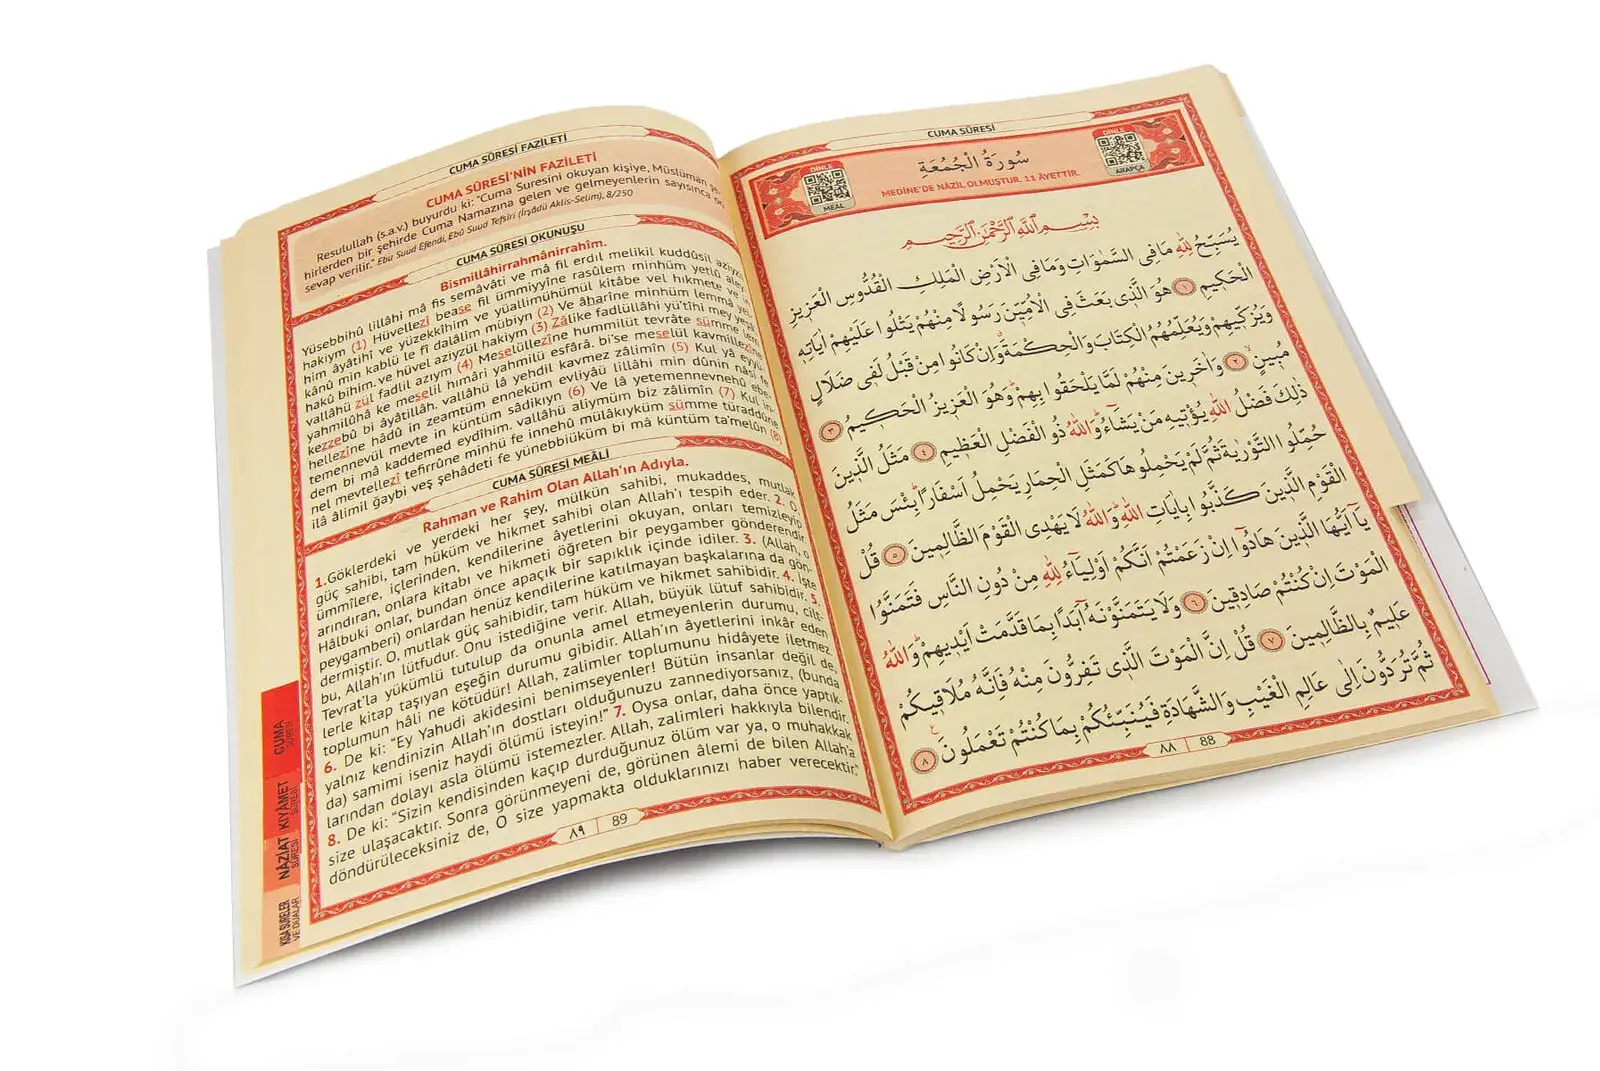 CUMA SÛRESİ
DİNLE
MEAL
سُورَةُ الْجُمُعَةِ
MEDİNE'DE NÂZİL OLMUŞTUR. 11 ÂYETTİR.
DİNLE
ARAPÇA
بِسْمِ اللّٰهِ الرَّحْمٰنِ الرَّحِيمِ
يُسَبِّحُ لِلّٰهِ مَا فِي السَّمٰوَاتِ وَمَا فِي الْاَرْضِ الْمَلِكِ الْقُدُّوسِ الْعَزِيزِ
الْحَكِيمِ ﴿١﴾ هُوَ الَّذِي بَعَثَ فِي الْاُمِّيّ۪نَ رَسُولًا مِنْهُمْ يَتْلُوا عَلَيْهِمْ اٰيَاتِهِ
وَيُزَكِّيهِمْ وَيُعَلِّمُهُمُ الْكِتَابَ وَالْحِكْمَةَ وَاِنْ كَانُوا مِنْ قَبْلُ لَفِي ضَلَالٍ
مُبِينٍ ﴿٢﴾ وَاٰخَرِينَ مِنْهُمْ لَمَّا يَلْحَقُوا بِهِمْ وَهُوَ الْعَزِيزُ الْحَكِيمُ ﴿٣﴾
ذٰلِكَ فَضْلُ اللّٰهِ يُؤْتِيهِ مَنْ يَشَاءُ وَاللّٰهُ ذُو الْفَضْلِ الْعَظِيمِ ﴿٤﴾ مَثَلُ الَّذِينَ
حُمِّلُوا التَّوْرٰيةَ ثُمَّ لَمْ يَحْمِلُوهَا كَمَثَلِ الْحِمَارِ يَحْمِلُ اَسْفَارًا بِئْسَ مَثَلُ
الْقَوْمِ الَّذِينَ كَذَّبُوا بِاٰيَاتِ اللّٰهِ وَاللّٰهُ لَا يَهْدِي الْقَوْمَ الظَّالِمِينَ ﴿٥﴾ قُلْ
يَا اَيُّهَا الَّذِينَ هَادُوا اِنْ زَعَمْتُمْ اَنَّكُمْ اَوْلِيَاءُ لِلّٰهِ مِنْ دُونِ النَّاسِ فَتَمَنَّوُا
الْمَوْتَ اِنْ كُنْتُمْ صَادِقِينَ ﴿٦﴾ وَلَا يَتَمَنَّوْنَهُ اَبَدًا بِمَا قَدَّمَتْ اَيْدِيهِمْ وَاللّٰهُ
عَلِيمٌ بِالظَّالِمِينَ ﴿٧﴾ قُلْ اِنَّ الْمَوْتَ الَّذِي تَفِرُّونَ مِنْهُ فَاِنَّهُ مُلَاقِيكُمْ
ثُمَّ تُرَدُّونَ اِلٰى عَالِمِ الْغَيْبِ وَالشَّهَادَةِ فَيُنَبِّئُكُمْ بِمَا كُنْتُمْ تَعْمَلُونَ ﴿٨﴾
٨٨ 88
CUMA SÛRESİ FAZİLETİ
CUMA SÛRESİ'NİN FAZİLETİ
Resulullah (s.a.v.) buyurdu ki: "Cuma Suresini okuyan kişiye, Müslüman şe-
hirlerden bir şehirde Cuma Namazına gelen ve gelmeyenlerin sayısınca on
sevap verilir." Ebu Suud Efendi, Ebû Suud Tefsiri (İrşâdü Aklis-Selim), 8/250
CUMA SÛRESİ OKUNUŞU
Bismillâhirrahmânirrahîm.
Yüsebbihû lillâhi mâ fis semâvâti ve mâ fil erdıl melikil kuddûsil aziyzıl
hakiym (1) Hüvellezî bease fil ümmiyyîne rasûlem minhüm yetlû aley
him âyâtihî ve yüzekkîhim ve yüallimühümül kitâbe vel hıkmete ve in
kânû min kablü le fî dalâlim mübiyn (2) Ve âharîne minhüm lemmâ yel
hakû bihim. ve hüvel aziyzül hakiym (3) Zâlike fadlüllâhi yü'tîhi mey yeşâ
vallâhü zül fadlil azıym (4) Meselüllezîne hummilüt tevrâte sümme lem
yahmilûhâ ke meselil hımâri yahmilü esfârâ. bi'se meselül kavmillezîne
kezzebû bi âyâtillâh. vallâhü lâ yehdil kavmez zâlimîn (5) Kul yâ eyyü
hellezîne hâdû in zeamtüm enneküm evliyâü lillâhi min dûnin nâsi fe
temennevül mevte in küntüm sâdikıyn (6) Ve lâ yetemennevnehû ebe
dem bi mâ kaddemed eydîhim. vallâhü aliymüm biz zâlimîn (7) Kul in
nel mevtellezî tefirrûne minhü fe innehû mülâkıyküm sümme türaddûne
ilâ âlimil ğaybi veş şehâdeti fe yünebbiüküm bi mâ küntüm ta'melûn (8)
CUMA SÛRESİ MEÂLİ
Rahman ve Rahim Olan Allah'ın Adıyla.
1.Göklerdeki ve yerdeki her şey, mülkün sahibi, mukaddes, mutlak
güç sahibi, tam hüküm ve hikmet sahibi olan Allah'ı tespih eder. 2. O,
ümmîlere, içlerinden, kendilerine âyetlerini okuyan, onları temizleyip
arındıran, onlara kitabı ve hikmeti öğreten bir peygamber gönderendir.
Hâlbuki onlar, bundan önce apaçık bir sapıklık içinde idiler. 3. (Allah, o
peygamberi) onlardan henüz kendilerine katılmayan başkalarına da gön-
dermiştir. O, mutlak güç sahibidir, tam hüküm ve hikmet sahibidir. 4. İşte
bu, Allah'ın lütfudur. Onu istediğine verir. Allah, büyük lütuf sahibidir. 5.
Tevrat'la yükümlü tutulup da onunla amel etmeyenlerin durumu, cilt-
lerle kitap taşıyan eşeğin durumu gibidir. Allah'ın âyetlerini inkâr eden
toplumun hâli ne kötüdür! Allah, zalimler toplumunu hidâyete iletmez.
6. De ki: "Ey Yahudi akidesini benimseyenler! Bütün insanlar değil de,
yalnız kendinizin Allah'ın dostları olduğunuzu zannediyorsanız, (bunda
da) samimi iseniz haydi ölümü isteyin!" 7. Oysa onlar, daha önce yaptık-
larından dolayı asla ölümü istemezler. Allah, zalimleri hakkıyla bilendir.
8. De ki: "Sizin kendisinden kaçıp durduğunuz ölüm var ya, o muhakkak
size ulaşacaktır. Sonra görünmeyeni de, görünen âlemi de bilen Allah'a
döndürüleceksiniz de, O size yapmakta olduklarınızı haber verecektir."
٨٩ 89
CUMA
SÛRESİ
KIYÂMET
SÛRESİ
NÂZİAT
SÛRESİ
KISA SURELER
VE DUALAR